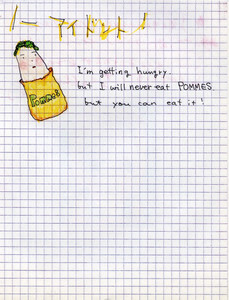 ノー アイドント!
I'm getting hungry.
but I will never eat POMMES
but you can eat it!
Pommes